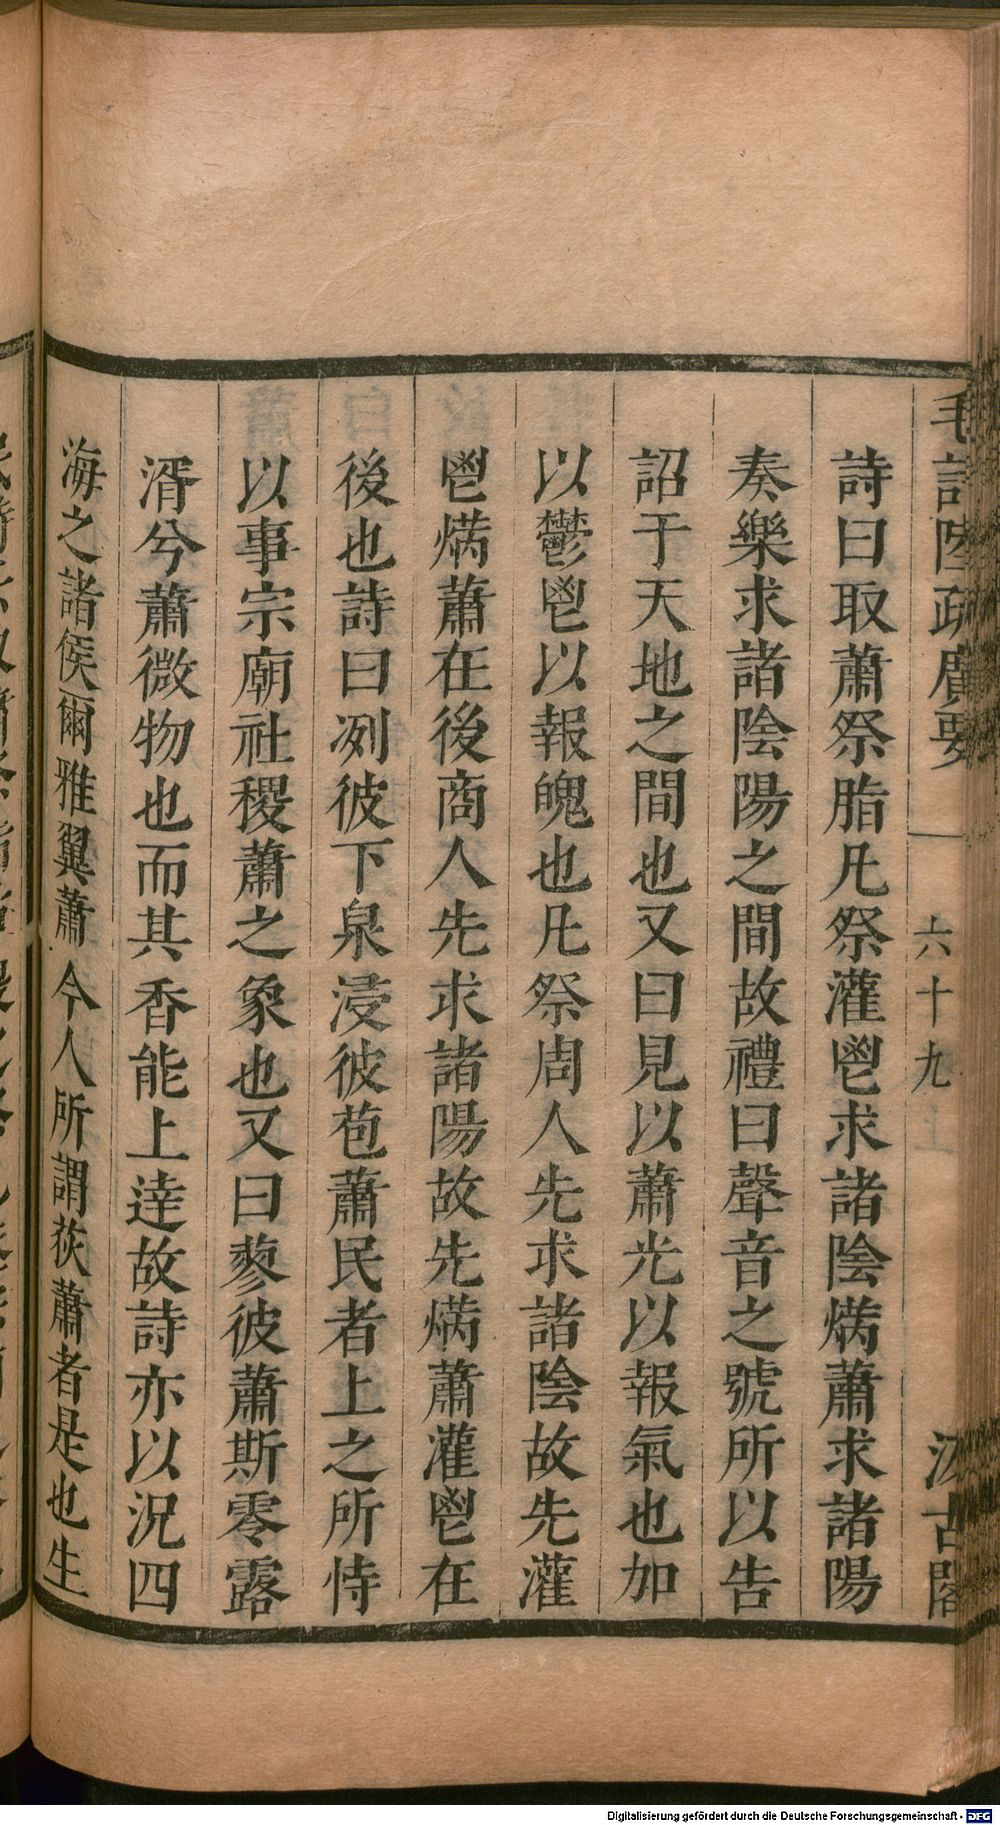 毛詩陸疏廣要 六十九上 汲古閣
詩曰取蕭祭脂凡祭灌鬯求諸陰焫蕭求諸陽
奏樂求諸陰陽之間故禮曰聲音之號所以告
詔于天地之間也又曰見以蕭光以報氣也加
以鬱鬯以報魄也凡祭周人先求諸陰故先灌
鬯焫蕭在後商人先求諸陽故先焫蕭灌鬯在
後也詩曰冽彼下泉浸彼苞蕭民者上之所恃
以事宗廟社稷蕭之象也又曰蓼彼蕭斯零露
湑兮蕭微物也而其香能上達故詩亦以況四
海之諸侯爾雅翼蕭今人所謂荻蕭者是也生
Digitalisierung gefördert durch die Deutsche Forschungsgemeinschaft - DFG